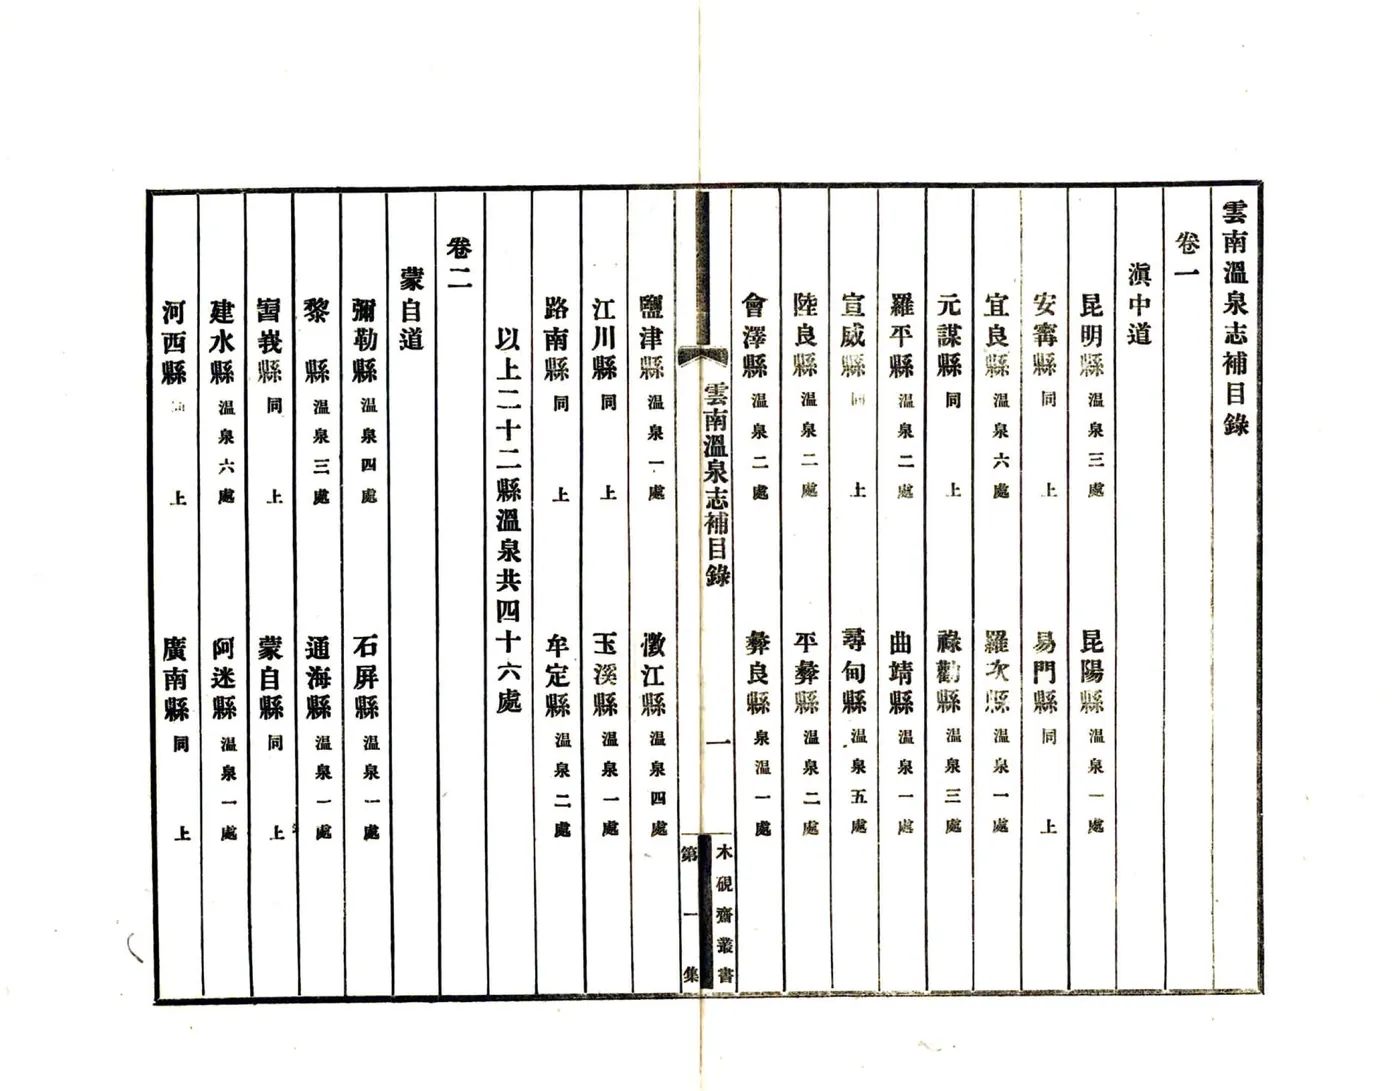 雲南溫泉志補目錄
卷一
滇中道
昆明縣 溫泉三處 昆陽縣 溫泉一處
安寗縣 同上 易門縣 同上
宜良縣 溫泉六處 羅次縣 溫泉一處
元謀縣 同上 祿勸縣 溫泉三處
羅平縣 溫泉二處 曲靖縣 溫泉一處
宣威縣 同上 尋甸縣 溫泉五處
陸良縣 溫泉二處 平彝縣 溫泉二處
會澤縣 溫泉二處 彝良縣 泉溫一處
雲南溫泉志補目錄 一
木硯齋叢書
第一集
鹽津縣 溫泉一處 澂江縣 溫泉四處
江川縣 同上 玉溪縣 溫泉一處
路南縣 同上 牟定縣 溫泉二處
以上二十二縣溫泉共四十六處
卷二
蒙自道
彌勒縣 溫泉四處 石屏縣 溫泉一處
黎縣 溫泉三處 通海縣 溫泉一處
峩縣 同上 蒙自縣 同上
建水縣 溫泉六處 阿迷縣 溫泉一處
河西縣 同上 廣南縣 同上